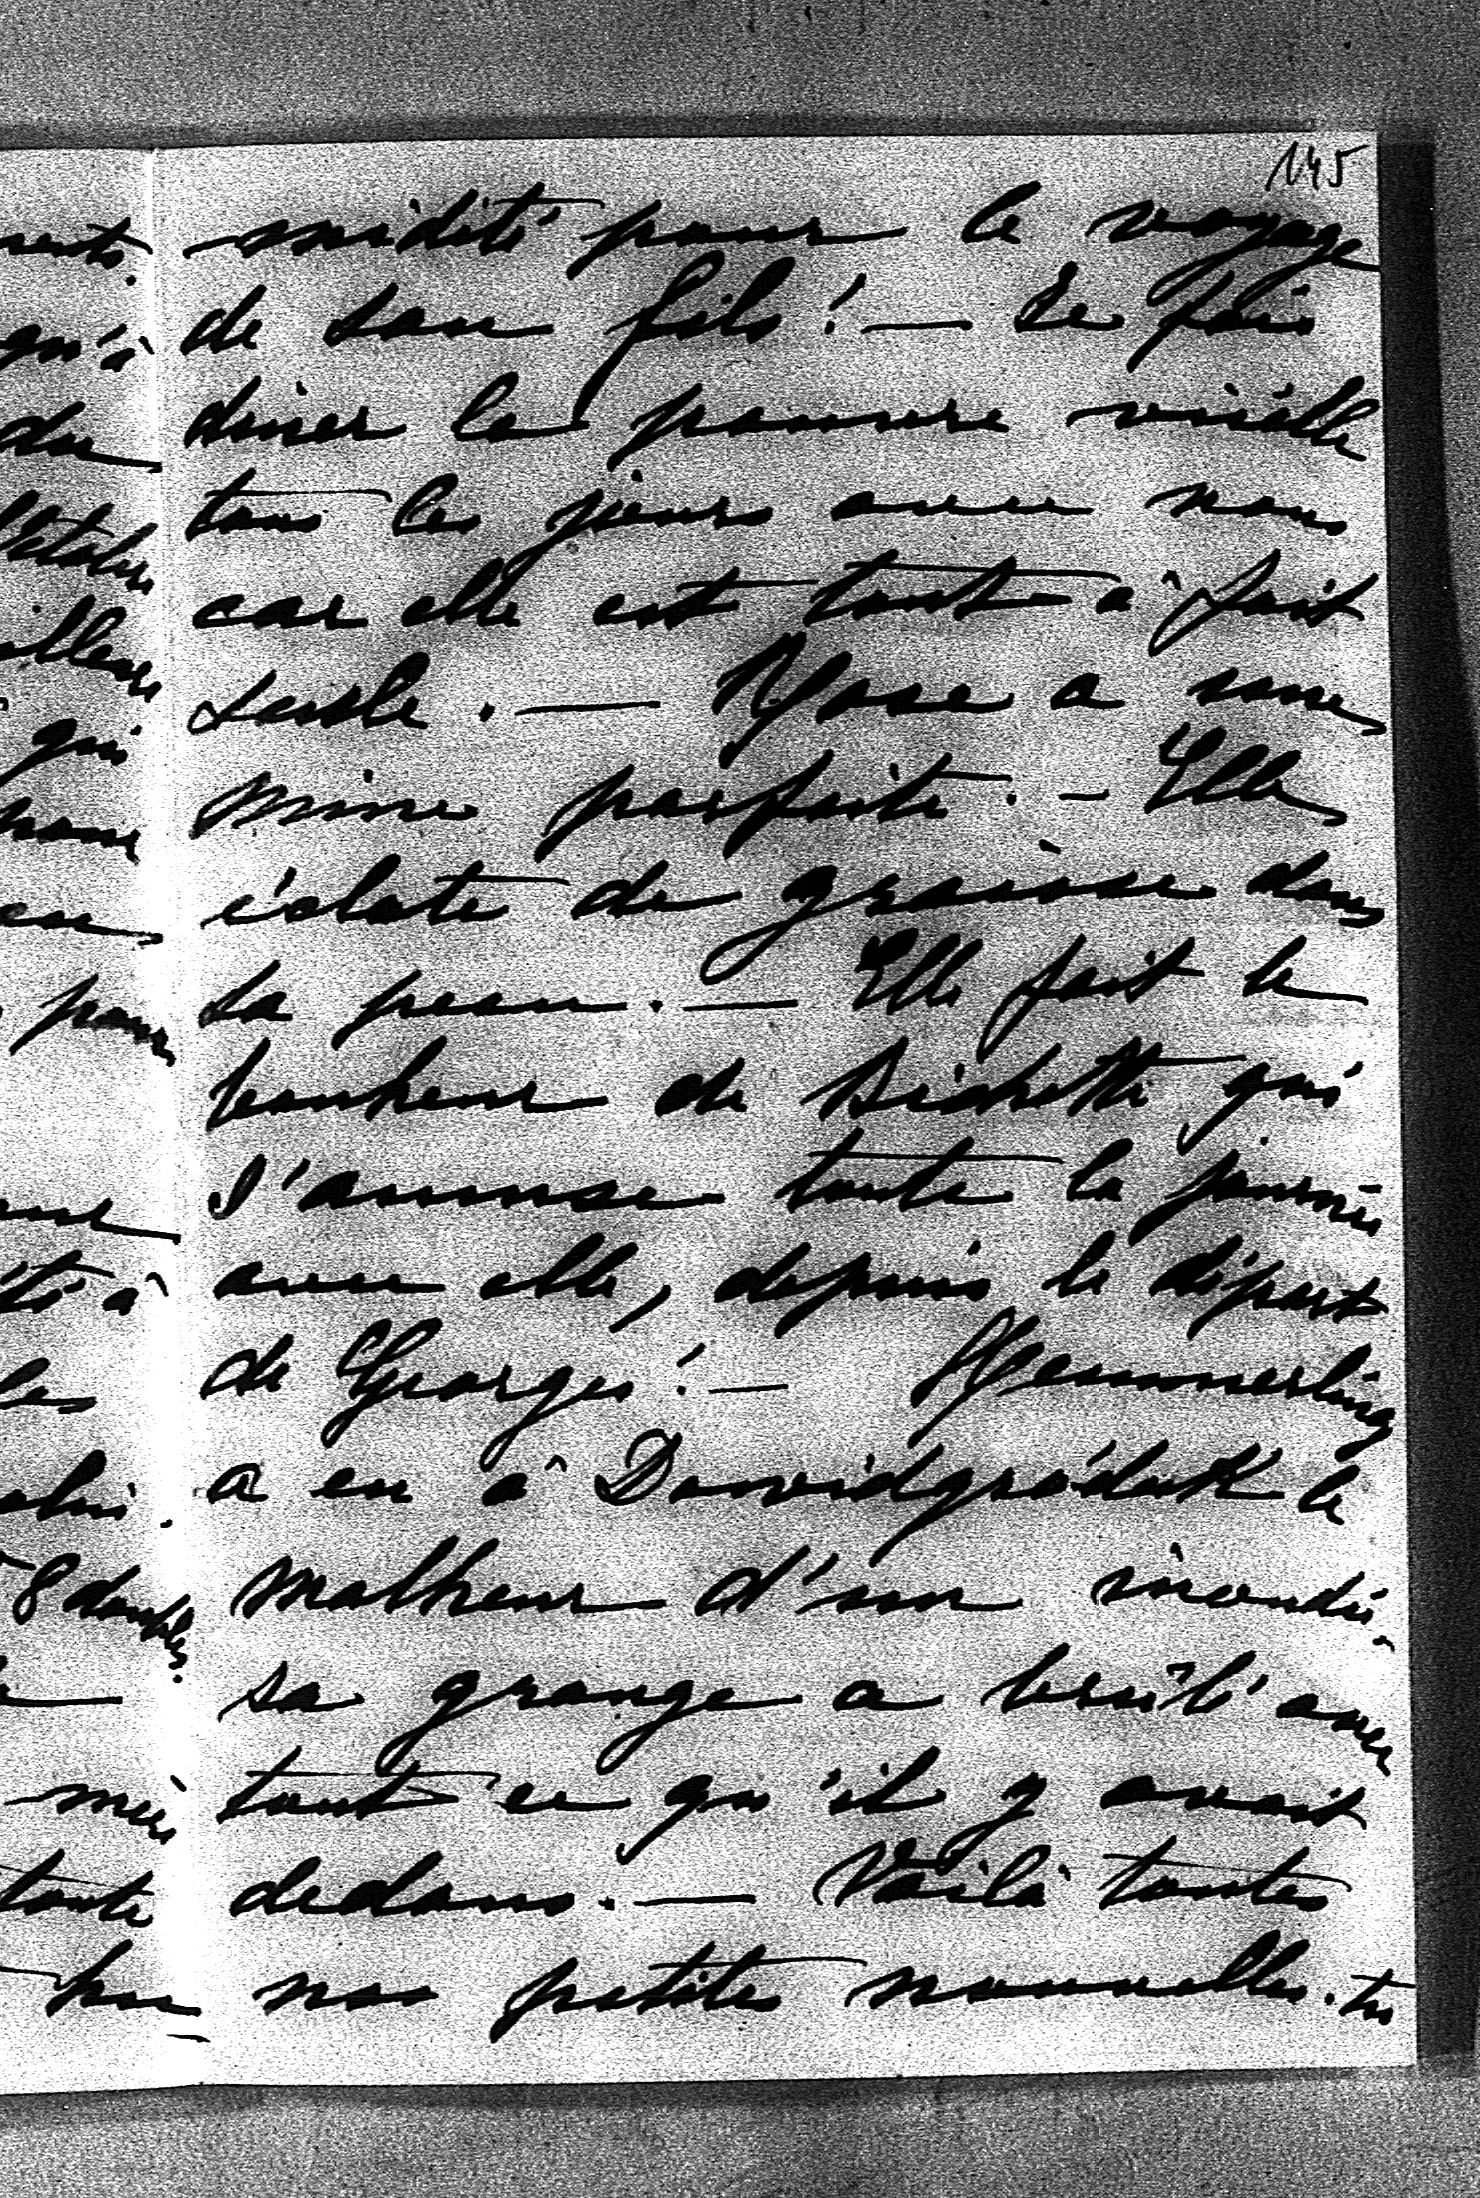 145
midité pour le voyage
de son fils ! — Je fais
diner la pauvre vieille
tous les jours avec nous
car elle est tout à fait
seule. — Rose a une
mine parfaite. — Elle
éclate de graisse dans
sa peau. — Elle fait le
bonheur de Bichette qui
s'amuse toute la journée
avec elle, depuis le départ
de Georges ! — Hemmerling
a eu à Dawidgródek le
malheur d'un incendie.
sa grange a brûlé avec
tout ce qu'il y avait
dedans. — Voilà toutes
nos petites nouvelles. tu